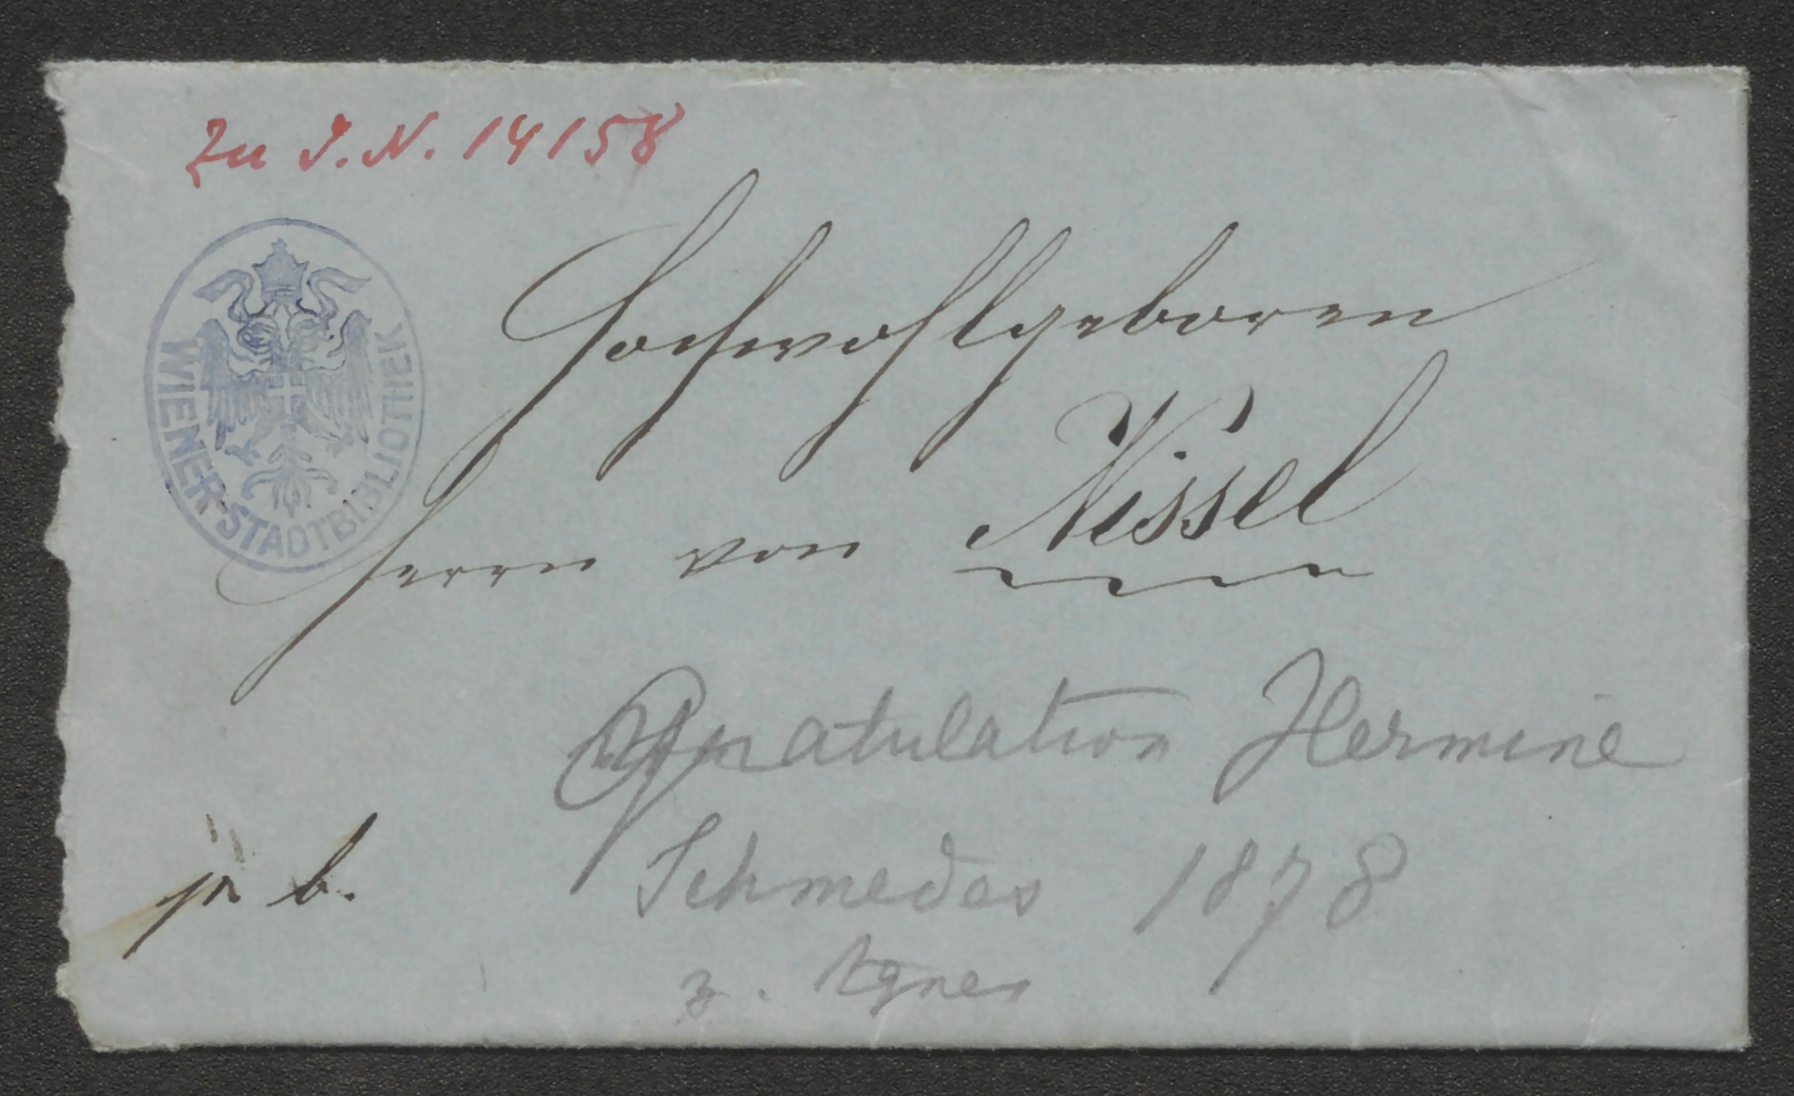 Zu I. N. 14158
WIENER STADTBIBLIOTHEK
Hochwohlgeboren
Herrn von Nissel
Gratulation Hermine
Schmedes 1878
z. Agnes
p. b.